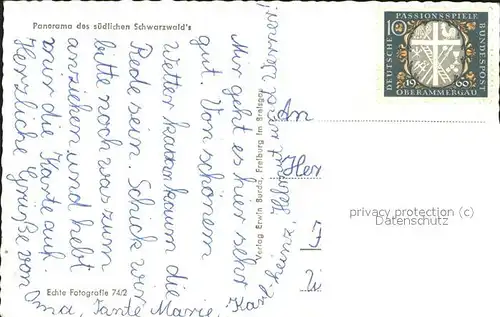 Panorama des südlichen Schwarzwald's
Mir geht es hier sehr
gut. Von schönem
Wetter kann kaum die
Rede sein. Schick mir
bitte noch was zum
anziehen und hebt
mir die Karte auf.
Herzliche Grüße von
Oma, Tante Marie, Karl-heinz, Helmut und Werner!
Echte Fotografie 74/2
Verlag Erwin Burda, Freiburg im Breisgau
An
Her
DEUTSCHE BUNDESPOST
PASSIONSSPIELE
10
1960
OBERAMMERGAU
privacy protection (c)
Datenschutz